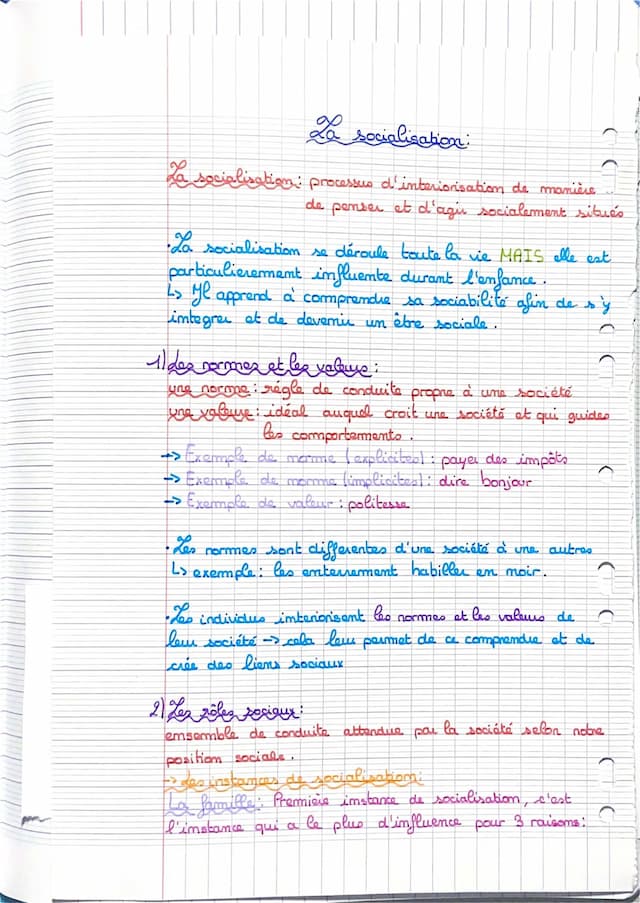 La socialisation:
La socialisation: processus d'interiorisation de manière
de penser et d'agir socialement situés
·La socialisation se déroule toute la vie MAIS elle est
particulierement influente durant l'enfance.
↳ Il apprend à comprendre sa sociabilité afin de s'y
integrer et de devenir un être sociale.
1) Les normes et les valeurs:
une norme: régle de conduite propre à une société
une valeur: idéal auquel croit une société et qui guides
les comportements.
-> Exemple de norme (explicites): payer des impôts
-> Exemple de norme (implicites): dire bonjour
-> Exemple de valeur: politesse
·Les normes sont differentes d'une société à une autres
↳ exemple: les enterrement habiller en noir.
·Les individus interiorisent les normes et les valeurs de
leur société -> cela leur permet de ce comprendre et de
crée des liens sociaux
2) Les rôles sociaux:
ensemble de conduite attendue par la société selon notre
position sociale.
-> Les instances de socialisation:
La famille: Première instance de socialisation, c'est
l'instance qui a le plus d'influence pour 3 raisons: